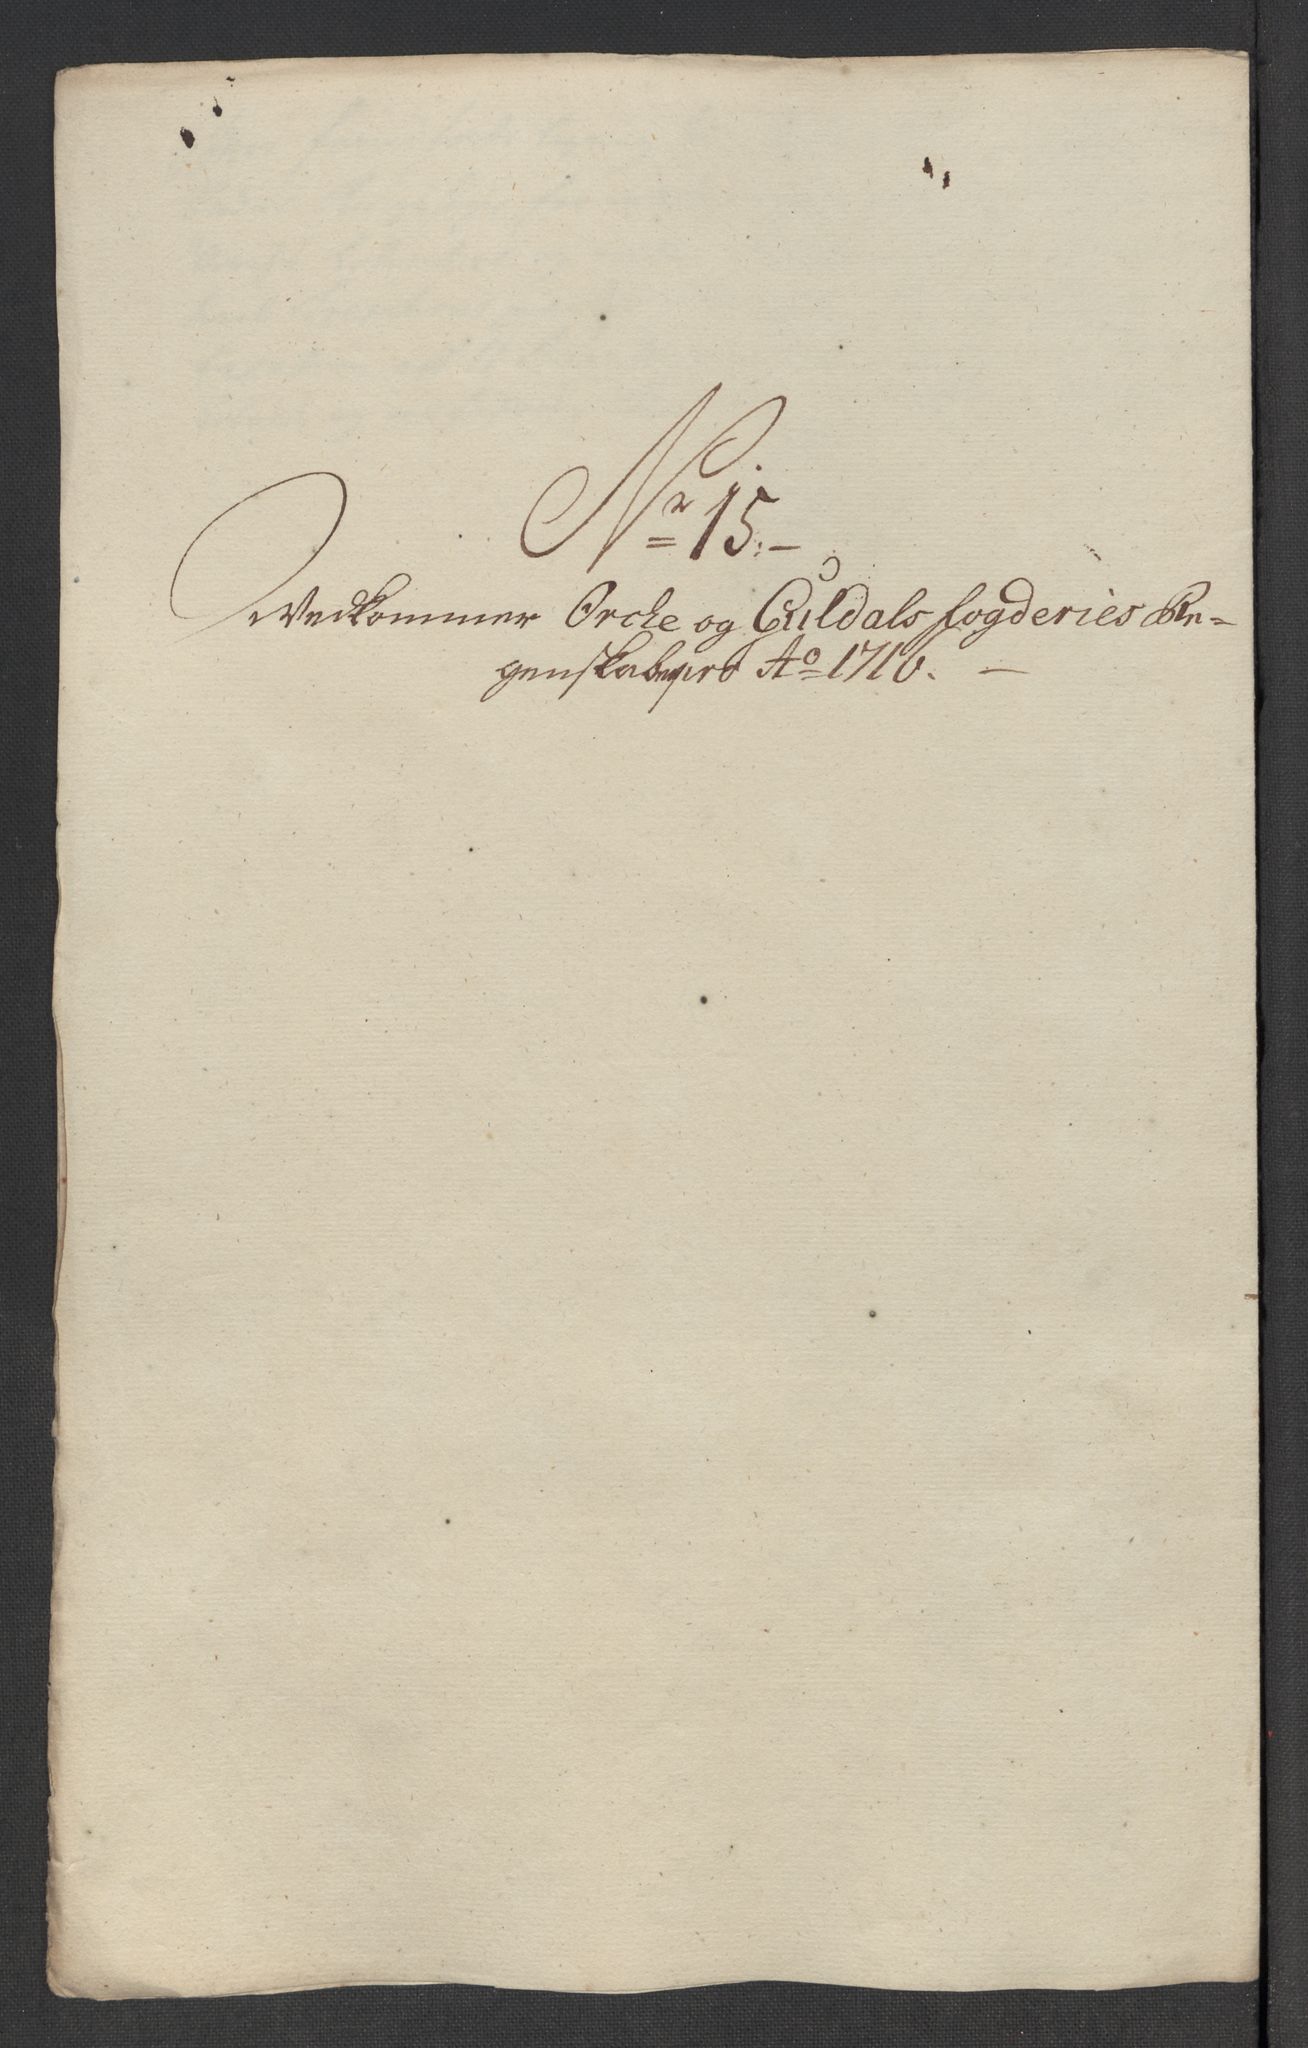 Nr 15.-
Vedkommer Orche og Guldals fogderies Re-
genskaber pro Ao 1716. -